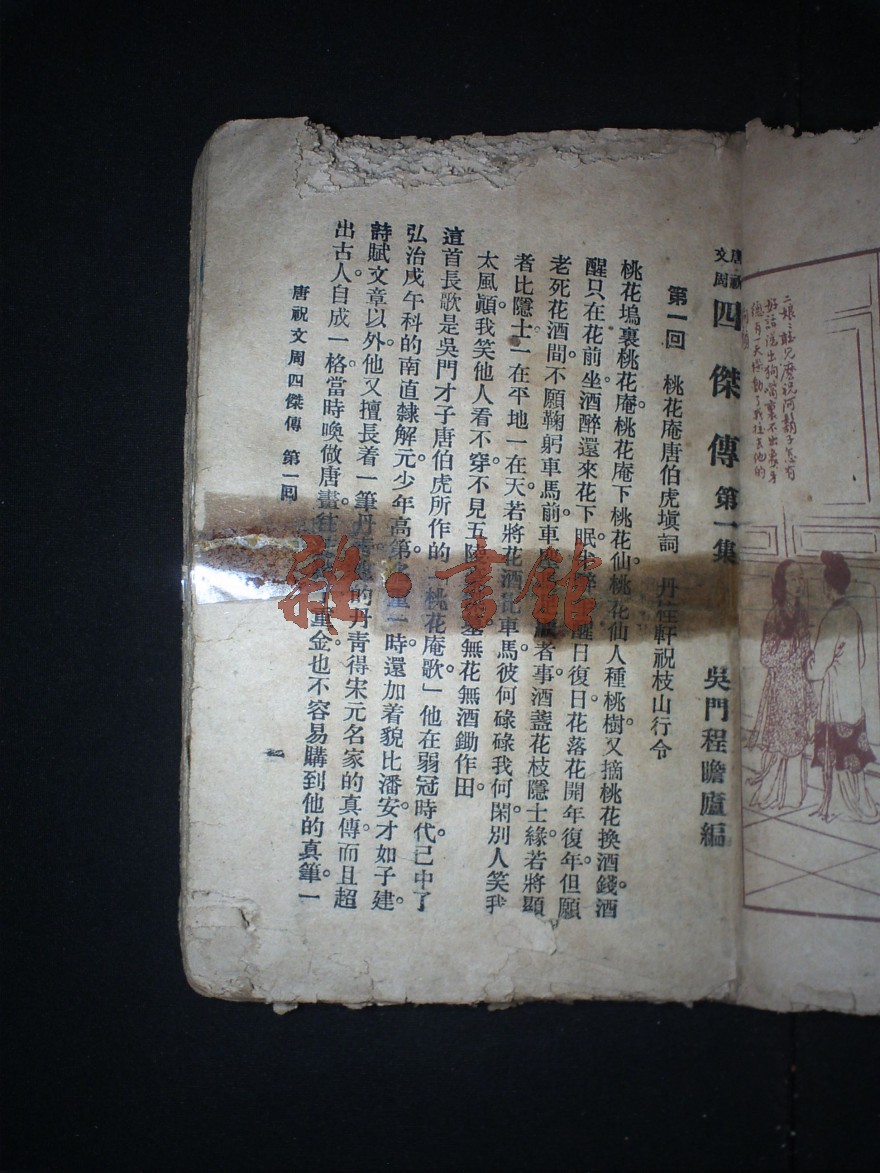 唐祝文周 四傑傳 第一集 吳門程瞻廬編
第一回 桃花庵唐伯虎塡詞 丹桂軒祝枝山行令
桃花塢裏桃花庵。桃花庵下桃花仙。桃花仙人種桃樹。又摘桃花換酒錢。酒
醒只在花前坐。酒醉還來花下眠。醉醒日復日。花落花開年復年。但願
老死花酒間。不願鞠躬車馬前。車者事。酒盞花枝隱士緣。若將顯
者比隱士。一在平地一在天。若將花酒比車馬。彼何碌碌我何閑。別人笑我
太風顚。我笑他人看不穿。不見五無花無酒鋤作田。
這首長歌是吳門才子唐伯虎所作的「桃花庵歌」。他在弱冠時代。已中了
弘治戊午科的南直隸解元。少年高第。一時。還加着貌比潘安。才如子建。
詩賦文章以外。他又擅長着一筆丹靑。的丹靑。得宋元名家的真傳。而且超
出古人。自成一格。當時喚做唐畫。往重金也不容易購到他的真筆。一
唐祝文周四傑傳 第一回
一
二娘二娘
雜·書館